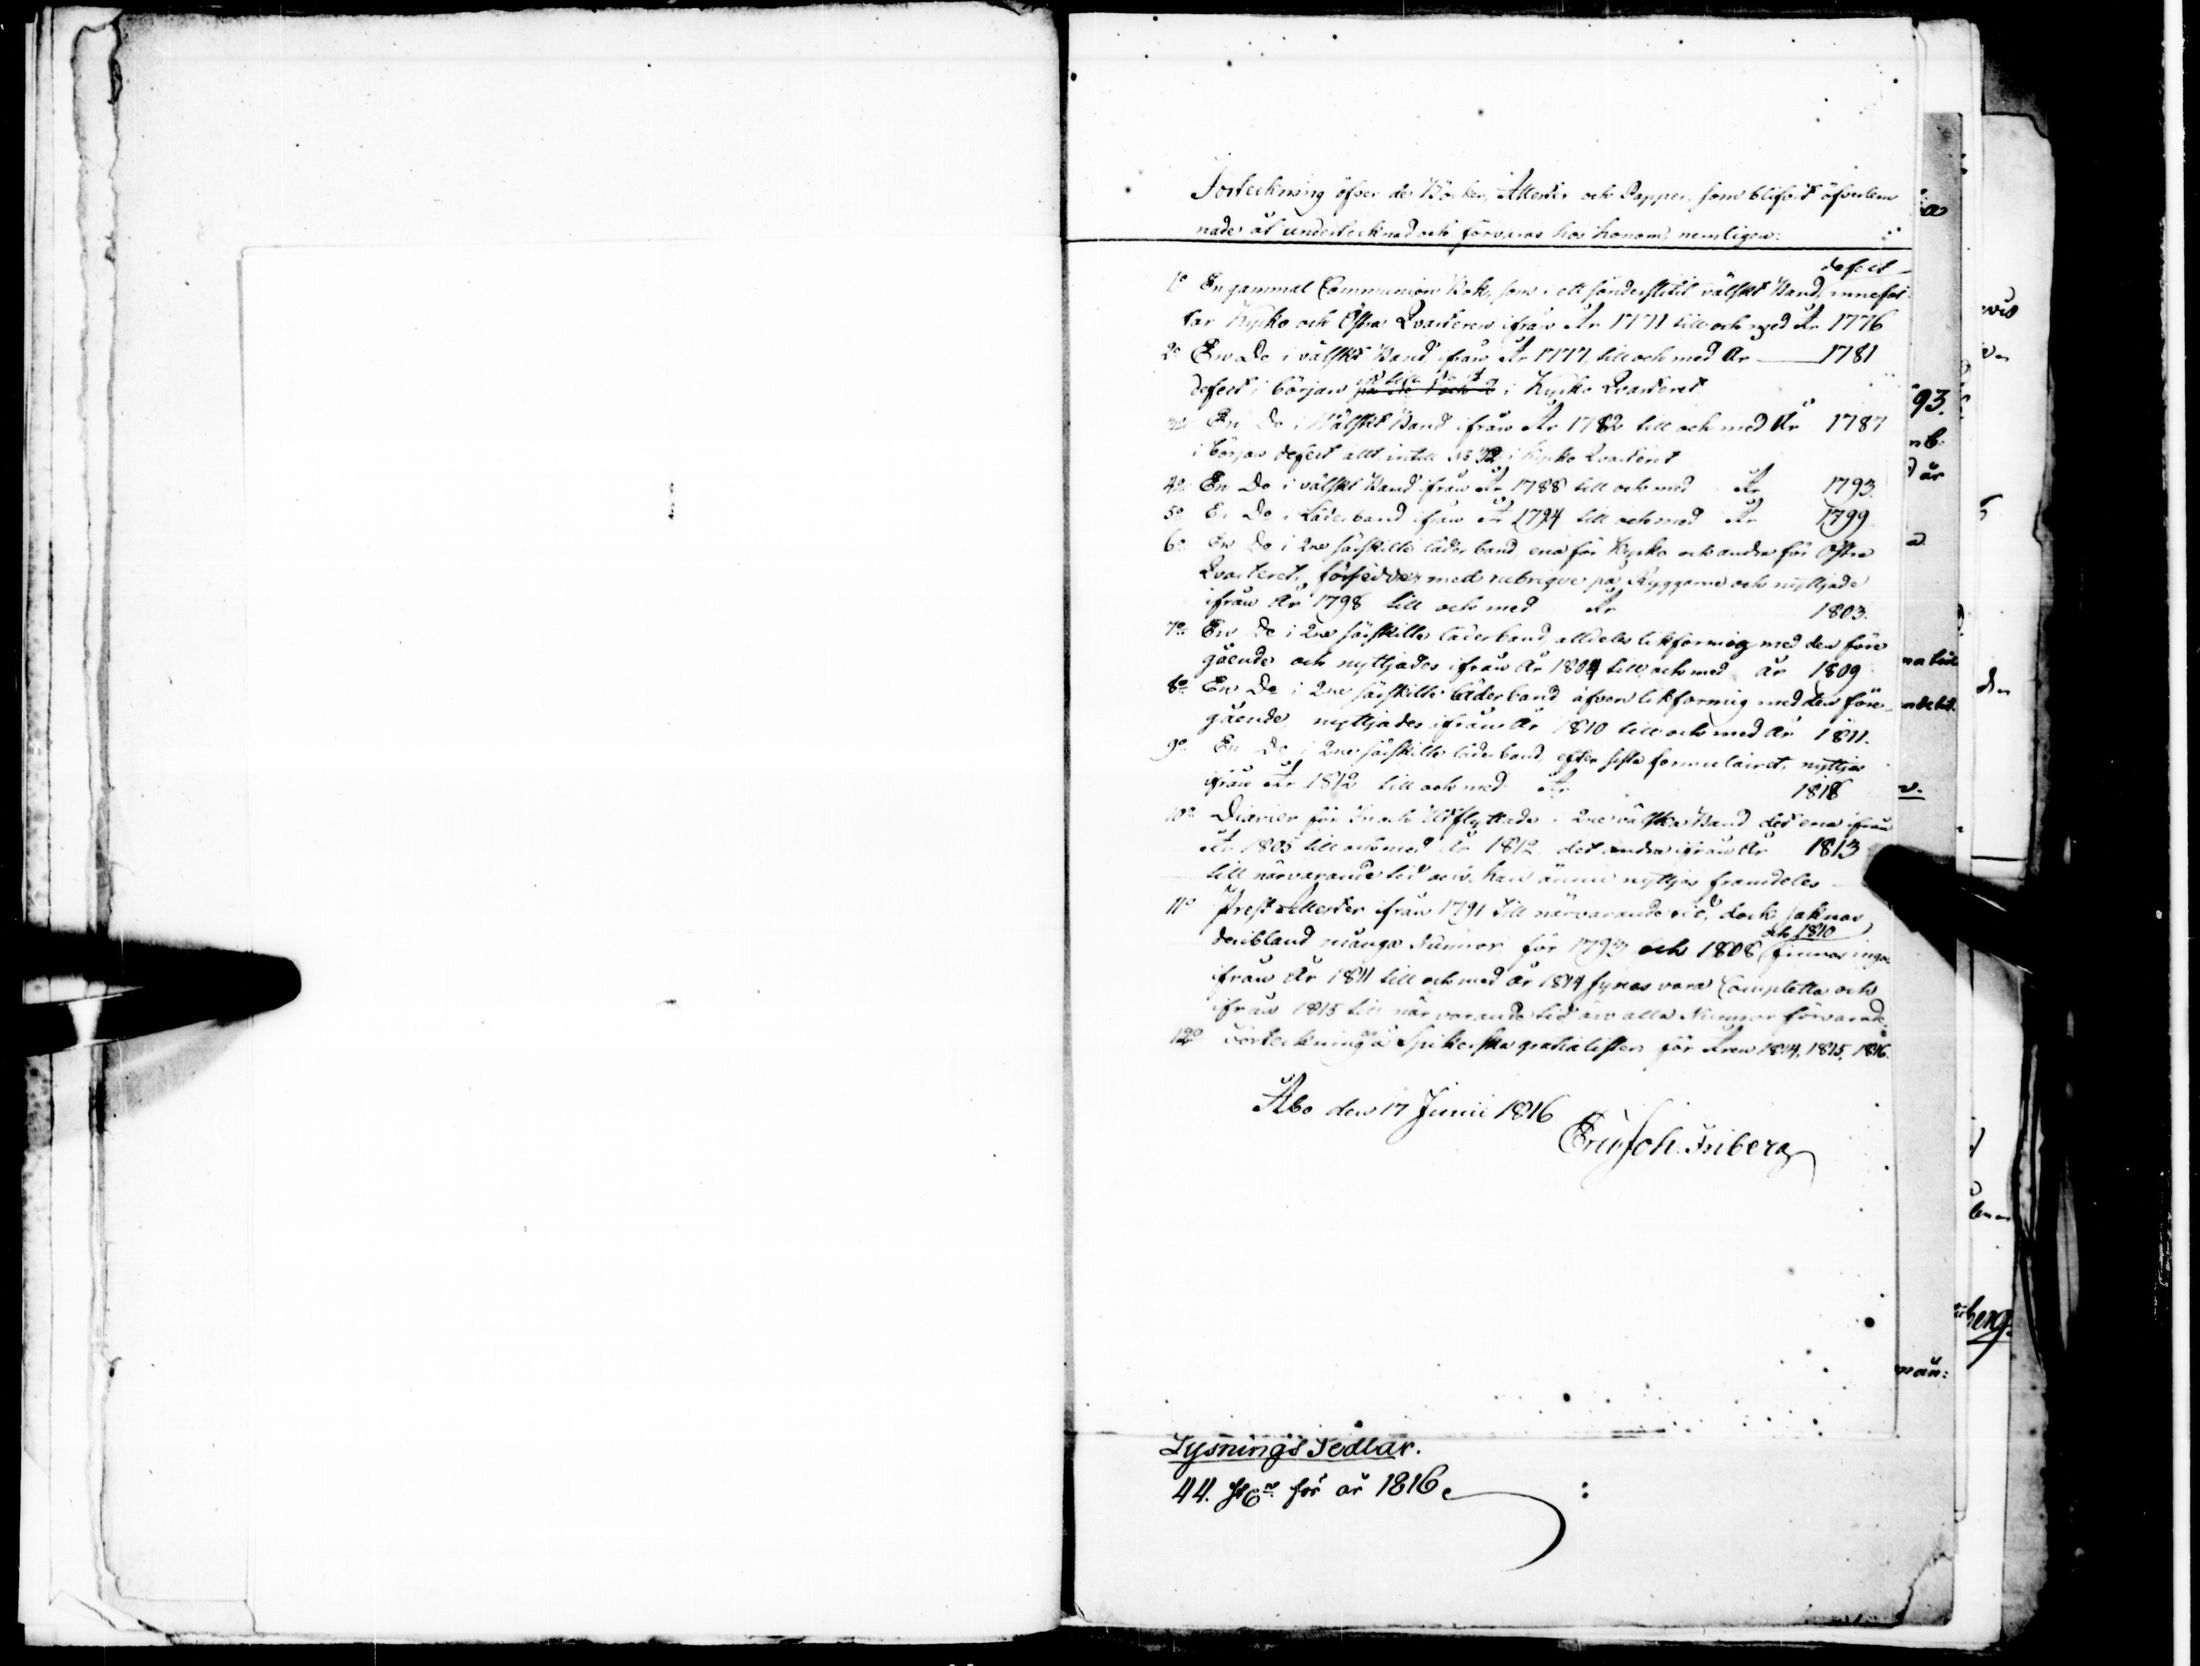 Förteckning öfver de Böcker, Attester och Papper, som blifvit öfverlem
nade åt undertecknad och förvaras hos honom, nemligen:
defect
1o En gammal Communion Bok, som i ett sönderslitit välskt Band, innefat
tar Kyrko och Östra Qvarteren ifrån År 1771 till och med År 1776
2o En Do i välskt Band ifrån År 1777 till och med År 1781
defect i början till i Kyrko Qvarteret
3o En Do i Wälskt Band ifrån År 1782 till och med År 1787
i början defect allt intill No 32 i Kyrko Qvarteret
4o En Do i välskt Band ifrån År 1788 till och med År 1793.
5o En Do i Läderband ifrån År 1794 till och med År 1799
6o En Do i 2ne särskilte läderband, ena för Kyrko och andra för Östra
Qvarteret, försedde med rubrique på Ryggarne och nyttjade
ifrån År 1798 till och med År 1803.
7o En Do i 2ne särskilte läderband alldeles likformig med den före
gående och nyttjades ifrån År 1804 till och med År 1809
8o En Do i 2ne särskilte läderband äfven likformig med den före-
gående nyttjades ifrån År 1810 till och med År 1811.
9o En Do i 2ne särskilte läderband efter sista formulairet, nyttjas
ifrån År 1812 till och med År 1818
10o Diarier för In och Utflyttade i 2ne välska Band det ena ifrån
År 1805 till och med År 1812 det andra ifrån År 1813
till närvarande tid och kan ännu nyttjas framdeles
11o Prest Attester ifrån 1791 till närvarande tid, dock saknas
och 1810
deribland många Numror för 1793 och 1808 finnas inga
ifrån År 1811 till och med år 1814 synes vara Completta och
ifrån 1815 till närvarande tid äro alla Numror förvarade.
12o Förteckningar å Spikerska gratialister för Åren 1814, 1815, 1816.
Åbo den 17 Junii 1816
Eric Joh. Friberg
93.
berg.
Lysnings Sedlar.
44. för år 1816.